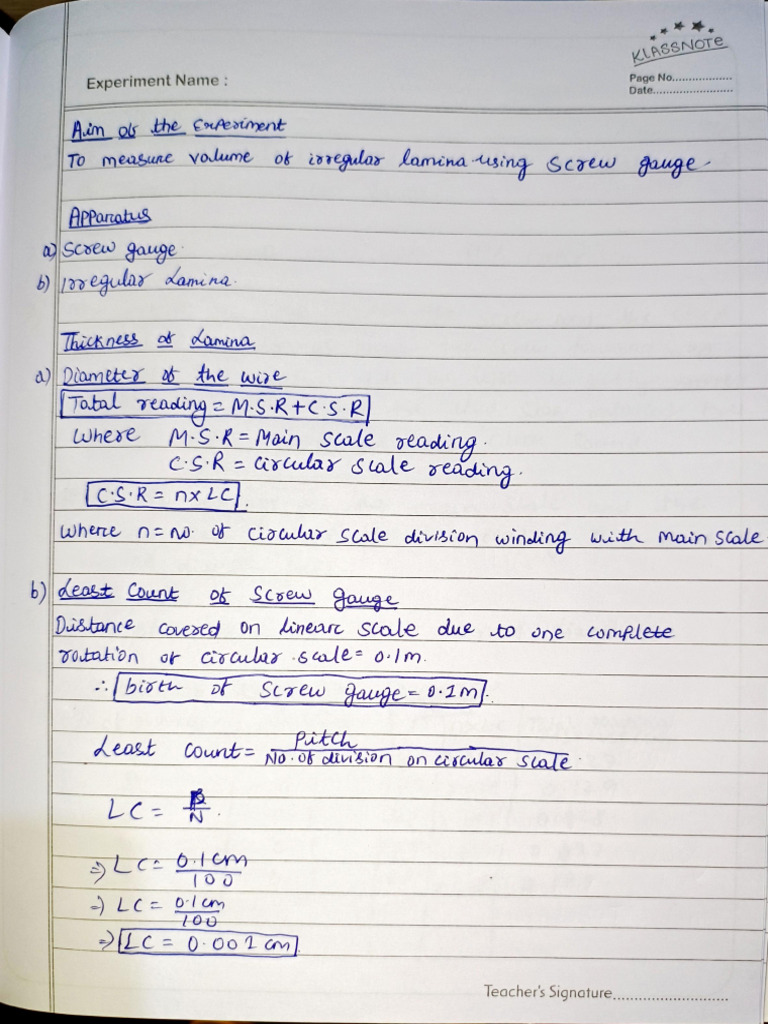 KLASSNOTE
Experiment Name :
Page No.................
Date........................
Aim of the Experiment
To measure volume of irregular lamina using screw gauge.
Apparatus
a) Screw gauge.
b) Irregular Lamina.
Thickness of Lamina
a) Diameter of the wire
Total reading = M.S.R + C.S.R
Where M.S.R = Main scale reading.
C.S.R = circular scale reading.
C.S.R = n x LC.
Where n = no. of circular scale division winding with main scale.
b) Least Count of Screw gauge
Distance covered on linearc scale due to one complete
rotation of circular scale = 0.1m.
∴ birth of screw gauge = 0.1m.
Least count = Pitch / No. of division on circular scale.
LC = P/N.
⇒ LC = 0.1cm/100
⇒ LC = 0.1cm/100
⇒ LC = 0.001 cm
Teacher's Signature............................